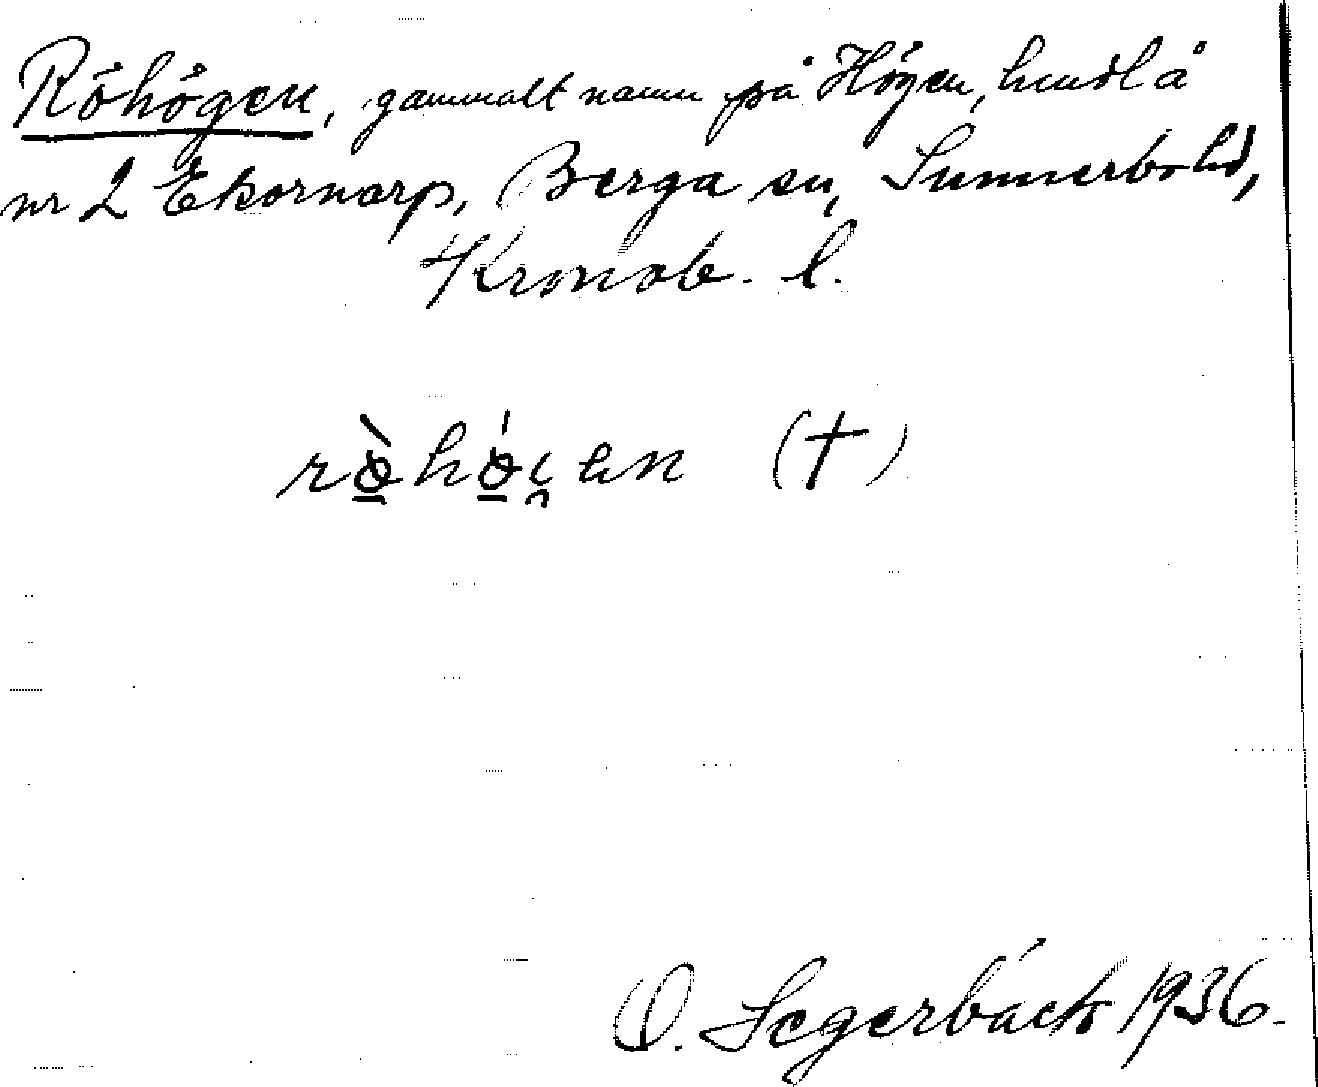 Röhögen, gammalt namn på Högen, hmdl å
nr 2 Ekornarp, Berga sn, Sunnerbo hd,
Kronob. l.
rö̀hö́i̯en (†)
O. Segerbäck 1936.